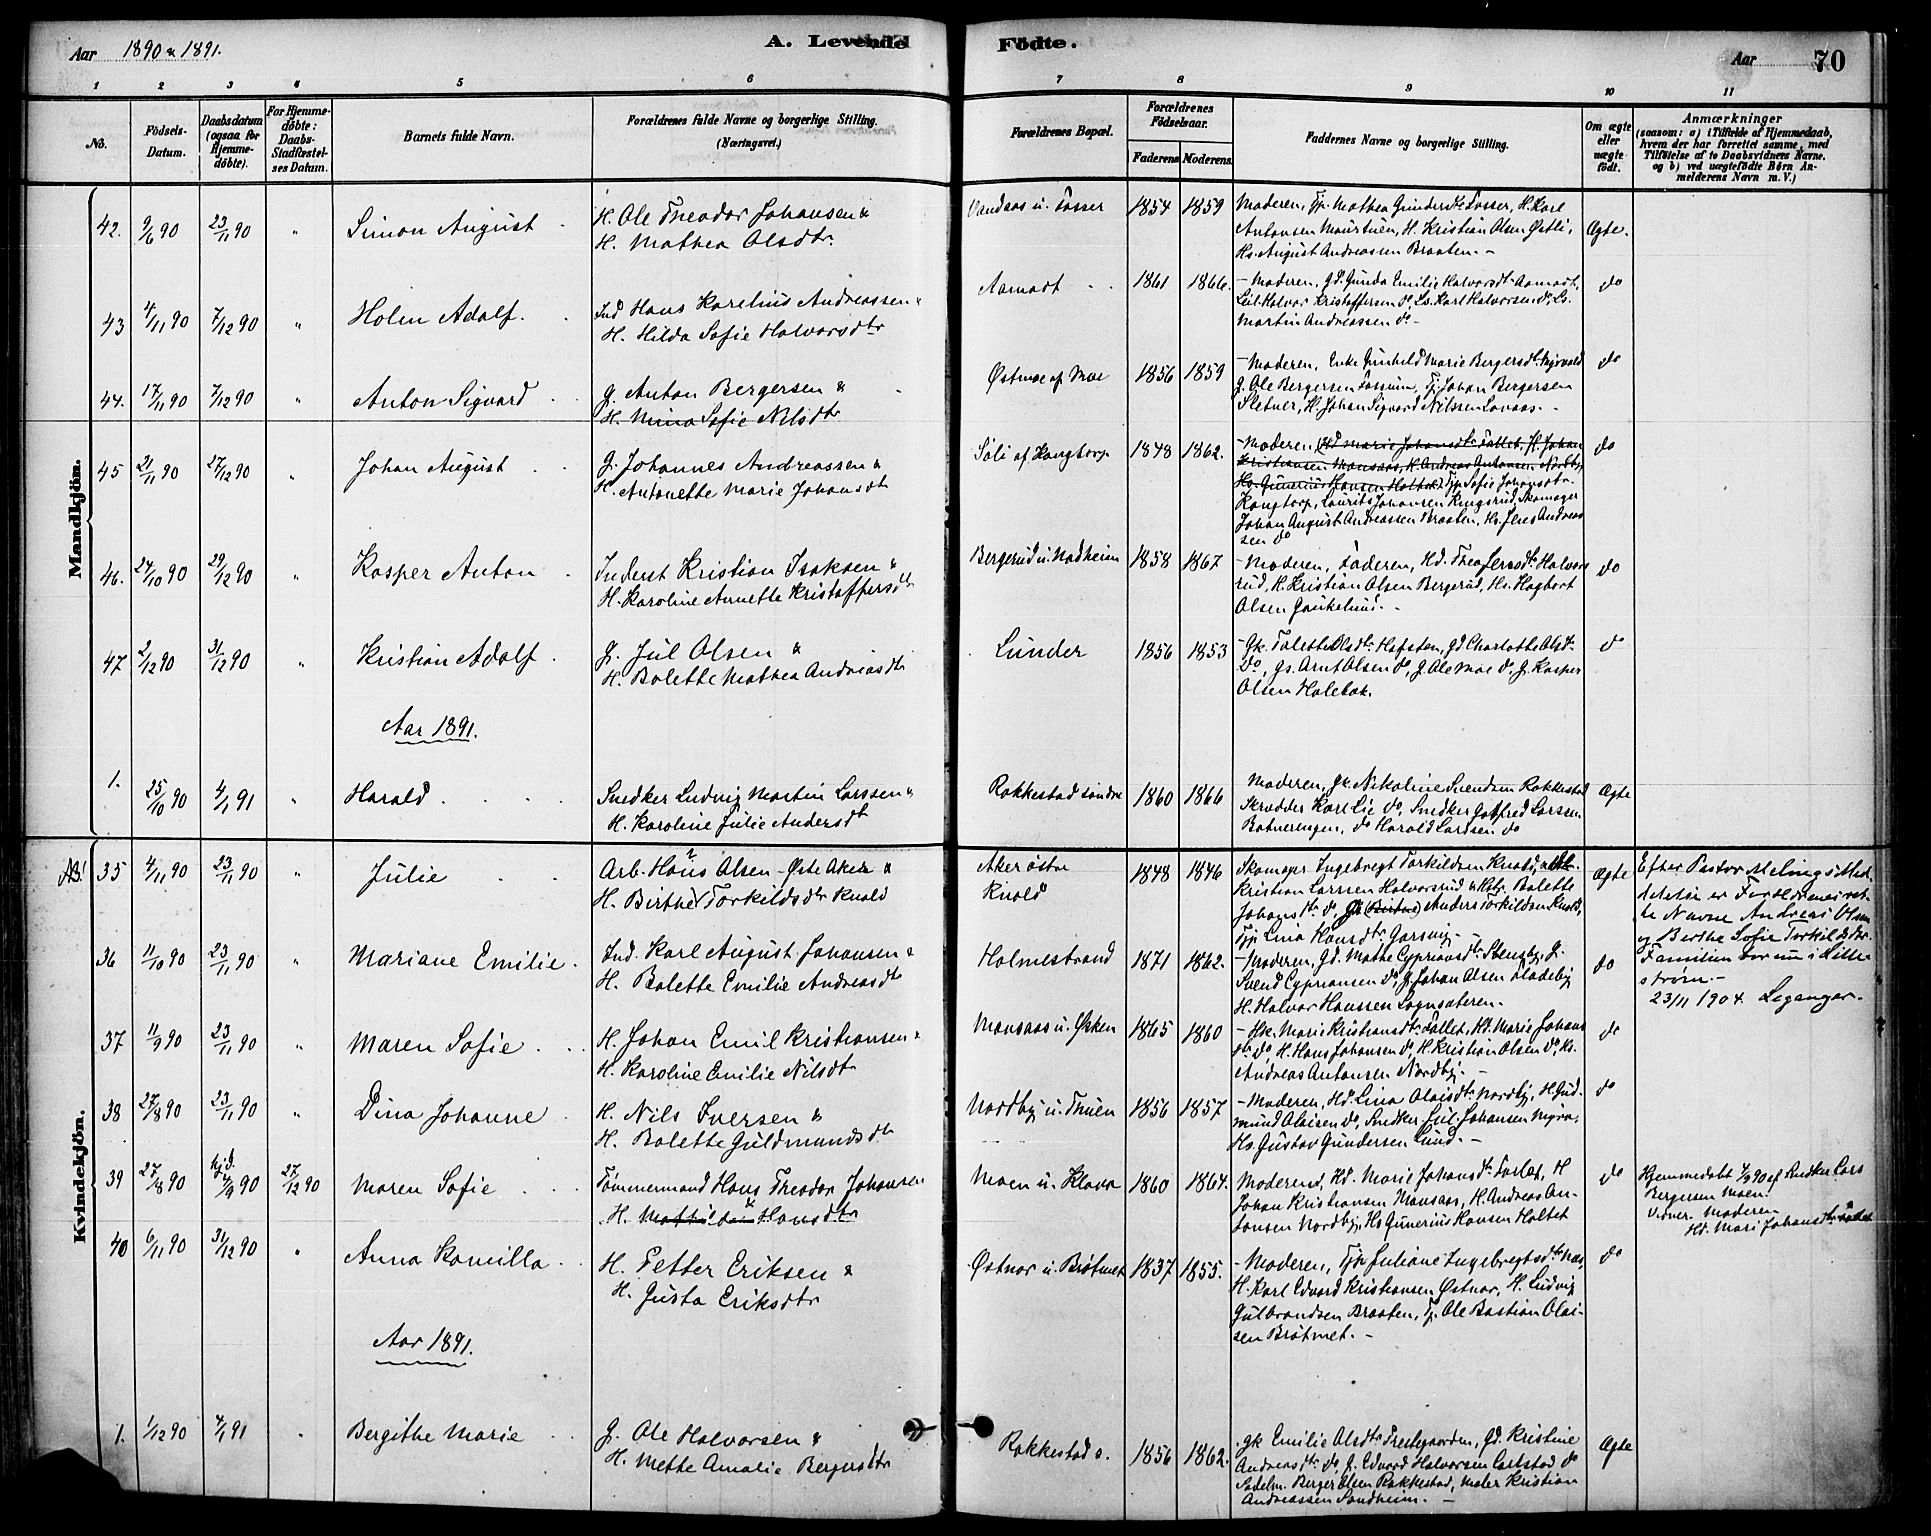 Aar 1890 & 1891.
A. Levende Födte.
Aar 70
1 2 3 4 5 6 7 8 9 10 11
No.
Födsels-Datum.
Daabsdatum (ogsaa for Hjemme-döbte).
For Hjemme-döbte: Daabs-Stadfæstel-ses Datum.
Barnets fulde Navn.
Forældrenes fulde Navne og borgerlige Stilling. (Næringsvei.)
Forældrenes Bopæl.
Forældrenes Födselsaar.
Faderens Moderens.
Faddernes Navne og borgerlige Stilling.
Om ægte eller uægte födt.
Anmærkninger
(saasom: a) i Tilfælde af Hjemmedaab,
hvem der har forrettet samme, med
Tilföielse af to Daabsvidners Navne,
og b) ved uægtefödte Börn An-
melderens Navn m. V.)
Mandkjön.
42. 9/6 90 23/11 90 " Simon August
H. Ole Theodor Johansen &
H. Mathea Olsdtr.
Vandaas u. Fosser 1854 1859
Moderen, Tjp. Mathea Gundersdtr Fosser, H. Karl
Antonsen Maurtuen, H. Kristian Olsen Østli,
Hs. August Andreassen Braaten. -
Ægte.
43 4/11 90 7/12 90 " Holm Adolf.
Ind Hans Karelius Andreassen &
H. Hilda Sofie Halvorsdtr
Aamodt 1861 1866.
- Moderen, Gd. Gunda Emilie Halvorsdtr Aamodt,
Halvor Kristoffersen do, Ls. Karl Halvorsen do, Ls.
Martin Andreassen do -
do
44. 17/11 90 7/12 90 " Anton Sigvard
G. Anton Bergersen &
H. Mina Sofie Nilsdtr
Østmoe af Moe 1856 1859
- Moderen, Enke Gunhild Marie Bergersdtr
G. Ole Bergersen Fossum, Tj. Johan Bergersen
Sletner, H. Johan Sigvard Nilssen Lovaas. -
do
45 21/11 90 27/12 90 " Johan August
G. Johannes Andreassen &
H. Antonette Marie Johansdtr
Søli af Kangtorp 1848 1862.
- Moderen (Hd Marie Johansdtr Tallet, H. Johan
Kristiansen Monsaas, H. Andreas Antonsen Nordby,
Hs. Gunerius Hansen Holtet) Tjp. Sofie Johansdtr
Kangtorp, Laurits Johansen Kingsrud, Skomager
Johan August Andreassen Braaten, Hs. Jens Andreas
sen do
do
46. 24/10 90 29/12 90 " Kasper Anton
Inderst Kristian Isaksen &
H. Karoline Annette Kristoffersdtr
Bergerud u. Nadheim 1858 1867
- Moderen, Faderen, Hd. Thea Jensdtr Halvors
rud, H. Kristian Olsen Bergerud, Hs. Hagbart
Olsen -
do
47 2/12 90 31/12 90 " Kristian Adolf
G. Jul Olsen &
H. Bolette Mathea Andreasdtr
Lunder 1856 1853
- Gk. Tolette Olsdtr Hafsten, Gd Charlotte Olsdtr
do, Gs. Arnt Olsen do, G. Ole Moe do, G. Kasper
Olsen Holebæk.
do
Aar 1891.
1. 25/10 90 4/1 91 " Harald
Snedker Ludvig Martin Larssen &
H. Karoline Julie Andersdtr
Rakkestad søndre 1860 1866
Moderen, Gk. Nikoline Svendsen Rakkestad
Skrædder Karl Lie do, Snedker Gotfred Larssen
Botnerengen, do Harald Larssen do
Ægte
Kvindekjön.
NB! 35 4/11 90 23/11 90 " Julie
Arb. Hans Olsen - Øste Aker &
H. Birthe Torkildsdtr Knold
Aker østre
Knold 1848 1846
Skomager Ingebregt Torkildsen Knold,
Kristian Larssen Halvorsrud & Hst. Bolette
Johannesdtr do, Anders Torkildsen Knold,
Tjp Lina Hansdtr
Ægte
Efter Pastor Melings Med-
delelse er Forældrenes ret-
te Navne Andreas Olsen
og Berthe Sofie Torkildsdtr.
Familien bor nu i Lille-
strøm. -
23/11 1904. Leganger.
36 11/10 90 23/11 90 " Mariane Emilie.
Ind. Karl August Johansen &
H. Bolette Emilie Andreasdtr
Holmestrand 1871 1862.
- Moderen, Gd. Mathe Cypriansdtr Stensby, G.
Svend Cypriansen do, G. Johan Olsen Fladeby
H. Halvor Hanssen Sognsæteren.
do
37 11/9 90 23/11 90 " Maren Sofie
H. Johan Emil Kristiansen &
H. Karoline Emilie Nilsdtr
Monsaas u. Østen 1865 1860
- Hk. Marie Kristiansdtr Tallet, Hd. Marie Johans
dtr do, H. Hans Johansen do, H. Kristian Olsen do, Hs.
Andreas Antonsen Nordby. -
do
38 27/8 90 23/11 90 " Dina Johanne
H. Nils Iversen &
H. Bolette Guldmundsdtr
Nordby u. Thuen 1856 1857
- Moderen, Hd. Lina Olaisdtr Nordby, H. Gud-
mund Olaisen do, Snedker Jul. Johansen Myra,
Hs. Gustav Gundersen Lund. -
do
39 27/8 90 hjd. 4/9 90 27/12 90 Maren Sofie
Tømmermand Hans Theodor Johansen
& H. Mathilde Hansdtr
Moen u. Klava 1860 1864.
Moderen, Hd. Marie Johansdtr H
Johan Kristiansen Monsaas, H. Andreas An-
tonsen Nordby, Hs Gunerius Hansen Holtet
do
Hjemmedøbt 4/9 90 af Snedker Lars
Bergersen Moen.
Vidner. Moderen
Hd. Mari Johansdtr Tallet
40 6/11 90 31/12 90 " Anna Kamilla
H. Petter Eriksen &
H. Gusta Eriksdtr
Østnor u. Brøtmet 1837 1855.
- Moderen, Tjp Juliane Ingebregtsdtr Næs,
H. Karl Edvard Kristiansen Østnor, H. Ludvig
Gulbrandsen Braaten, Tj. Ole Bastian Olai-
sen Brøtmet. -
do
Aar 1891.
1. 1/12 90 4/1 91 " Bergithe Marie
G. Ole Halvorsen &
H. Mette Amalie Bergersdtr
Rakkestad s. 1856 1862.
Gk Emilie Olsdtr Prestegaarden, Gd. Kristine
Andreasdtr do, G. Edvard Halvorsen Carlstad do
Sadelm. Berger Olsen Rakkestad, Maler Kristian
Andreassen Sandheim. -
Ægte